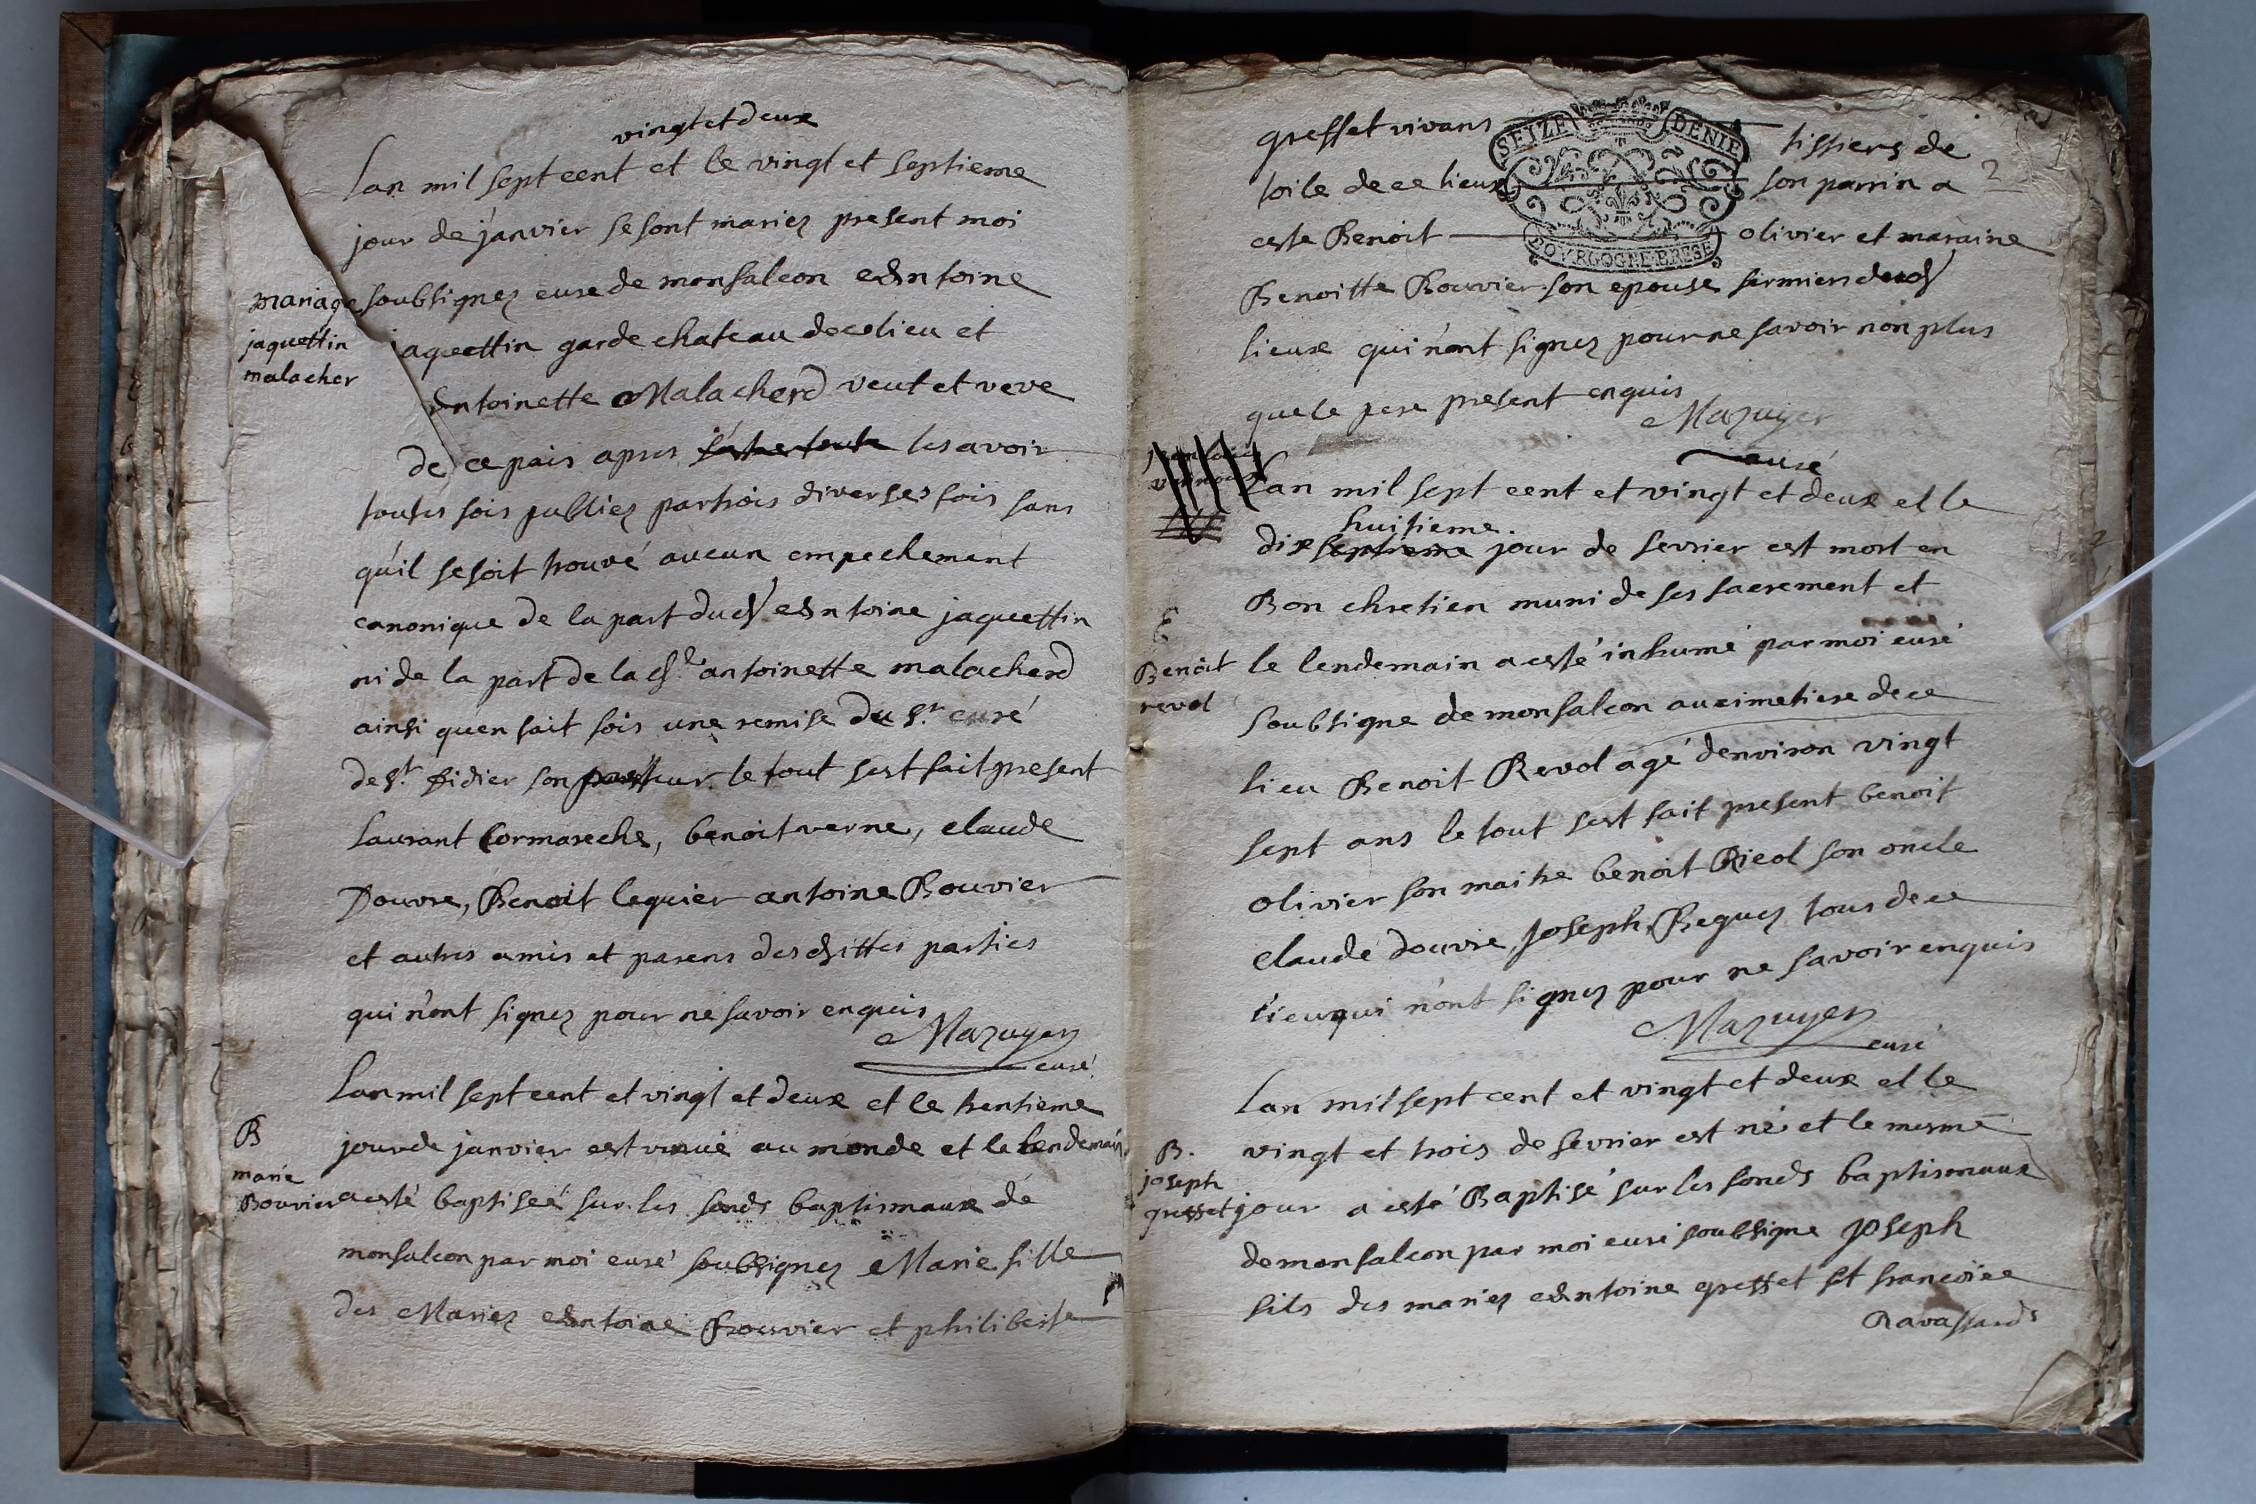 vingt et deux
Lan mil sept cent et le vingt et septieme
jour de janvier se sont mariez present moi
soubsignez curé de monfalcon Antoine
jaquettin garde chateau de ce lieu et
Antoinette Malacherd veut et veve
de ce pais apres les avoir
toutes fois publiez par trois diverses fois sans
qu'il se soit trouvé aucun empechement
canonique de la part dud Antoine jaquettin
ni de la part de la d.e antoinette malacherd
ainsi quen fait fois une remise du Sr curé
de St Didier son pasteur. le tout sest fait present
Laurant Cormareche, benoit verne, claude
Douvre, Benoit lequier antoine Bouvier
et autres amis et parens des dittes parties
qui n'ont signez pour ne savoir enquis
Mazuyer
curé
mariage
jaquettin
malacher
Lan mil sept cent et vingt et deux et le trentieme
jour de janvier est venue au monde et le lendemain
a esté baptiseé sur les fonds baptismaux de
monfalcon par moi curé soubsignez Marie fille
des Mariez Antoine Bouvier et philiberte
B
marie
Bouvier
gresset vivans tissiers de
toile de ce lieux son parrin a
2
este Benoit olivier et maraine
Benoitte Bouvier son epouse fermiers dud
lieux qui n'ont signez pour ne savoir non plus
que le pere present enquis
Mazuyer
curé
SEIZE DENIE
BOVRGOGNE BRESE
Lan mil sept cent et vingt et deux et le
huitieme.
dix septieme jour de fevrier est mort en
Bon chretien muni de ses sacrement et
le lendemain a esté inhumé par moi curé
soubsigne de monfalcon au cimetiere de ce
lieu Benoit Revol agé denviron vingt
sept ans le tout sest fait present benoit
olivier son maitre benoit Rieol son oncle
claude douvre, joseph Reguez tous de ce
lieu qui n'ont signez pour ne savoir enquis
Mazuyer
curé
E
Benoit
revol
Lan mil sept cent et vingt et deux et le
vingt et trois de fevrier est né et le mesme
jour a esté Baptisé sur les fonds baptismaux
de monfalcon par moi curé soubsigne joseph
fils des mariez Antoine gresset et francoise
Ravassards
B.
joseph
gresset